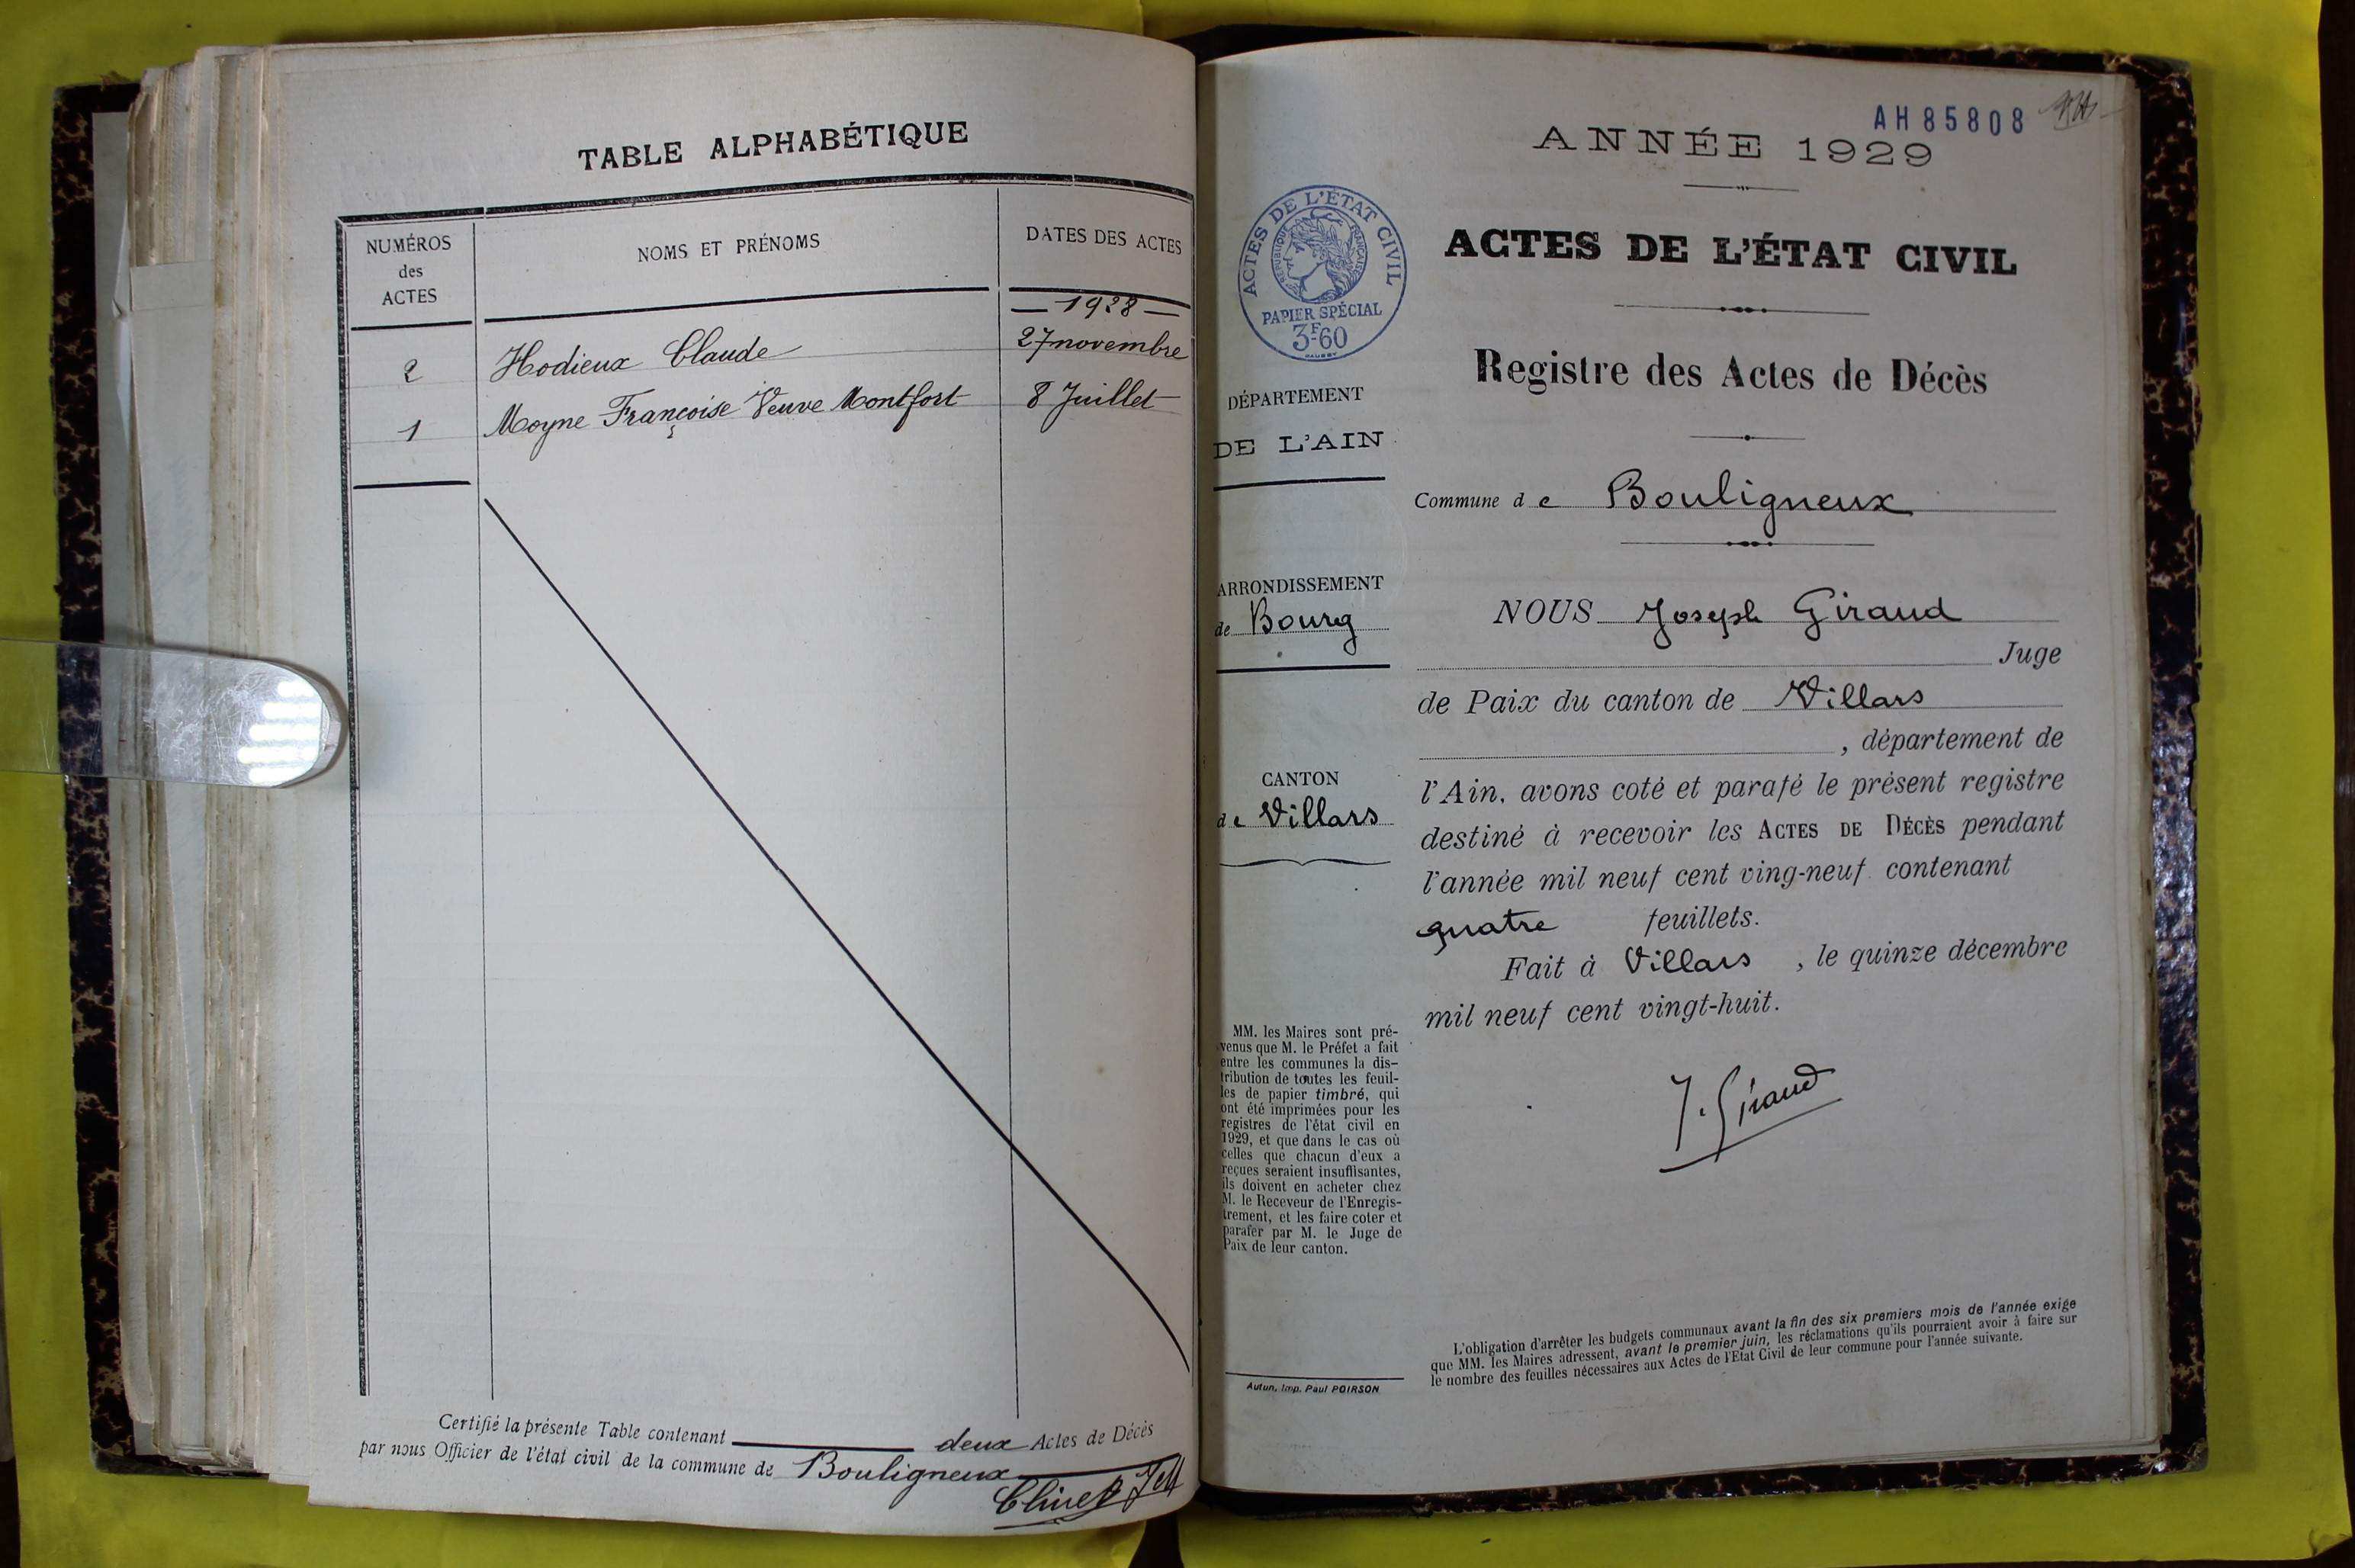 TABLE ALPHABÉTIQUE
NUMÉROS
des
ACTES
NOMS ET PRÉNOMS
DATES DES ACTES
— 1928 —
2 Hodieux Claude 27 novembre
1 Moyne Françoise Veuve Montfort 8 Juillet
Certifié la présente Table contenant deux Actes de Décès
par nous Officier de l'état civil de la commune de Bouligneux
AH85808
ANNÉE 1929
ACTES DE L'ÉTAT CIVIL
RÉPUBLIQUE FRANÇAISE
PAPIER SPÉCIAL
3F60
DÉPARTEMENT
DE L'AIN
ARRONDISSEMENT
de Bourg
CANTON
de Villars
MM. les Maires sont pré-
venus que M. le Préfet a fait
entre les communes la dis-
tribution de toutes les feuil-
les de papier timbré, qui
ont été imprimées pour les
registres de l'état civil en
1929, et que dans le cas où
celles que chacun d'eux a
reçues seraient insuffisantes,
ils doivent en acheter chez
M. le Receveur de l'Enregis-
trement, et les faire coter et
parafer par M. le Juge de
Paix de leur canton.
Autun, Imp. Paul POIRSON
ACTES DE L'ÉTAT CIVIL
Registre des Actes de Décès
Commune de Bouligneux
NOUS Joseph Giraud
Juge
de Paix du canton de Villars
, département de
l'Ain, avons coté et parafé le présent registre
destiné à recevoir les ACTES DE DÉCÈS pendant
l'année mil neuf cent ving-neuf contenant
quatre feuillets.
Fait à Villars , le quinze décembre
mil neuf cent vingt-huit.
J. Giraud
L'obligation d'arrêter les budgets communaux avant la fin des six premiers mois de l'année exige
que MM. les Maires adressent, avant le premier juin, les réclamations qu'ils pourraient avoir à faire sur
le nombre des feuilles nécessaires aux Actes de l'Etat Civil de leur commune pour l'année suivante.